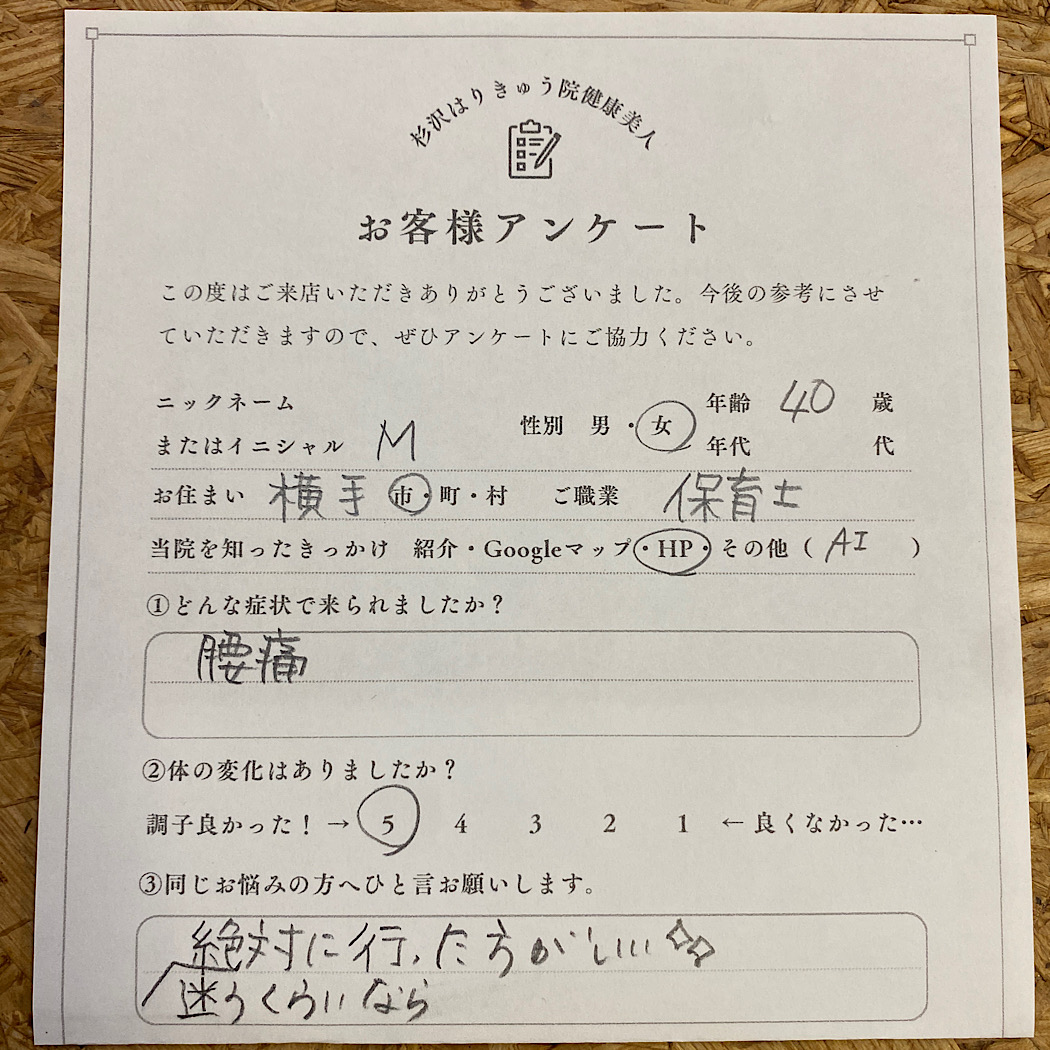 杉沢はりきゅう院健康美人
お客様アンケート
この度はご来店いただきありがとうございました。今後の参考にさせ
ていただきますので、ぜひアンケートにご協力ください。
ニックネーム
またはイニシャル M 性別 男・女 年齢 40 歳
年代 代
お住まい 横手 市・町・村 ご職業 保育士
当院を知ったきっかけ 紹介・Googleマップ・HP・その他（ AI ）
①どんな症状で来られましたか？
腰痛
②体の変化はありましたか？
調子良かった！→ 5 4 3 2 1 ←良くなかった…
③同じお悩みの方へひと言お願いします。
絶対に行った方がいい
迷うくらいなら